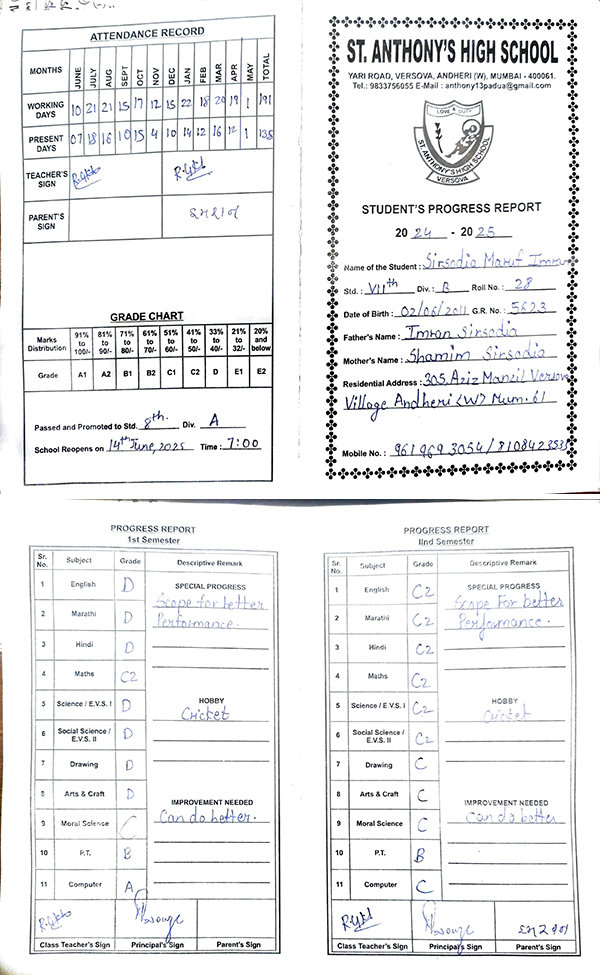 ATTENDANCE RECORD
MONTHS JUNE JULY AUG SEPT OCT NOV DEC JAN FEB MAR APR MAY TOTAL
WORKING DAYS 10 21 21 15 17 12 15 22 18 20 19 1 191
PRESENT DAYS 07 18 16 10 15 4 10 14 12 16 12 1 135
TEACHER'S SIGN
PARENT'S SIGN
GRADE CHART
Marks Distribution 91% to 100/- 81% to 90/- 71% to 80/- 61% to 70/- 51% to 60/- 41% to 50/- 33% to 40/- 21% to 32/- 20% and below
Grade A1 A2 B1 B2 C1 C2 D E1 E2
Passed and Promoted to Std. 8th. Div. A
School Reopens on 14th June, 2025 Time : 7:00
ST. ANTHONY'S HIGH SCHOOL
YARI ROAD, VERSOVA, ANDHERI (W), MUMBAI - 400061.
Tel.: 9833756055 E-Mail : anthony13padua@gmail.com
LOVE & DUTY
ST. ANTHONY'S HIGH SCHOOL
VERSOVA
STUDENT'S PROGRESS REPORT
2024 - 2025
Name of the Student : Sirsadia Maruf Imran
Std. : VIIth Div.: B Roll No.: 28
Date of Birth : 02/06/2011 G.R. No.: 5623
Father's Name : Imran Sirsadia
Mother's Name : Shamim Sirsadia
Residential Address : 305, Aziz Manzil Versova
Village Andheri (W) Mum. 61
Mobile No. : 961 969 3054 / 8108423535
PROGRESS REPORT
1st Semester
Sr. No. Subject Grade Descriptive Remark
1 English D SPECIAL PROGRESS
Scope for better
2 Marathi D Performance.
3 Hindi D
4 Maths C2
5 Science / E.V.S. I D HOBBY
Cricket
6 Social Science / E.V.S. II D
7 Drawing D
8 Arts & Craft D IMPROVEMENT NEEDED
9 Moral Science C Can do better.
10 P.T. B
11 Computer A
Class Teacher's Sign Principal's Sign Parent's Sign
PROGRESS REPORT
IInd Semester
Sr. No. Subject Grade Descriptive Remark
1 English C2 SPECIAL PROGRESS
Scope For better
2 Marathi C2 Performance.
3 Hindi C2
4 Maths C2
5 Science / E.V.S. I C2 HOBBY
Cricket
6 Social Science / E.V.S. II C2
7 Drawing C
8 Arts & Craft C IMPROVEMENT NEEDED
9 Moral Science C Can do better
10 P.T. B
11 Computer C
Class Teacher's Sign Principal's Sign Parent's Sign